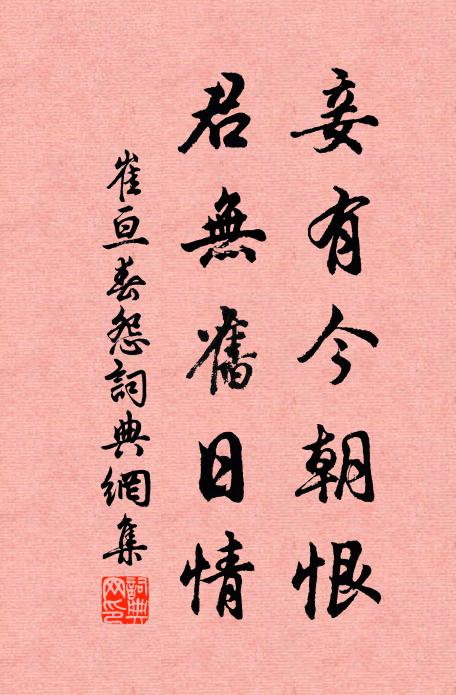 妾有今朝恨
君無舊日情
崔亘春怨詞典網集
詞典网印